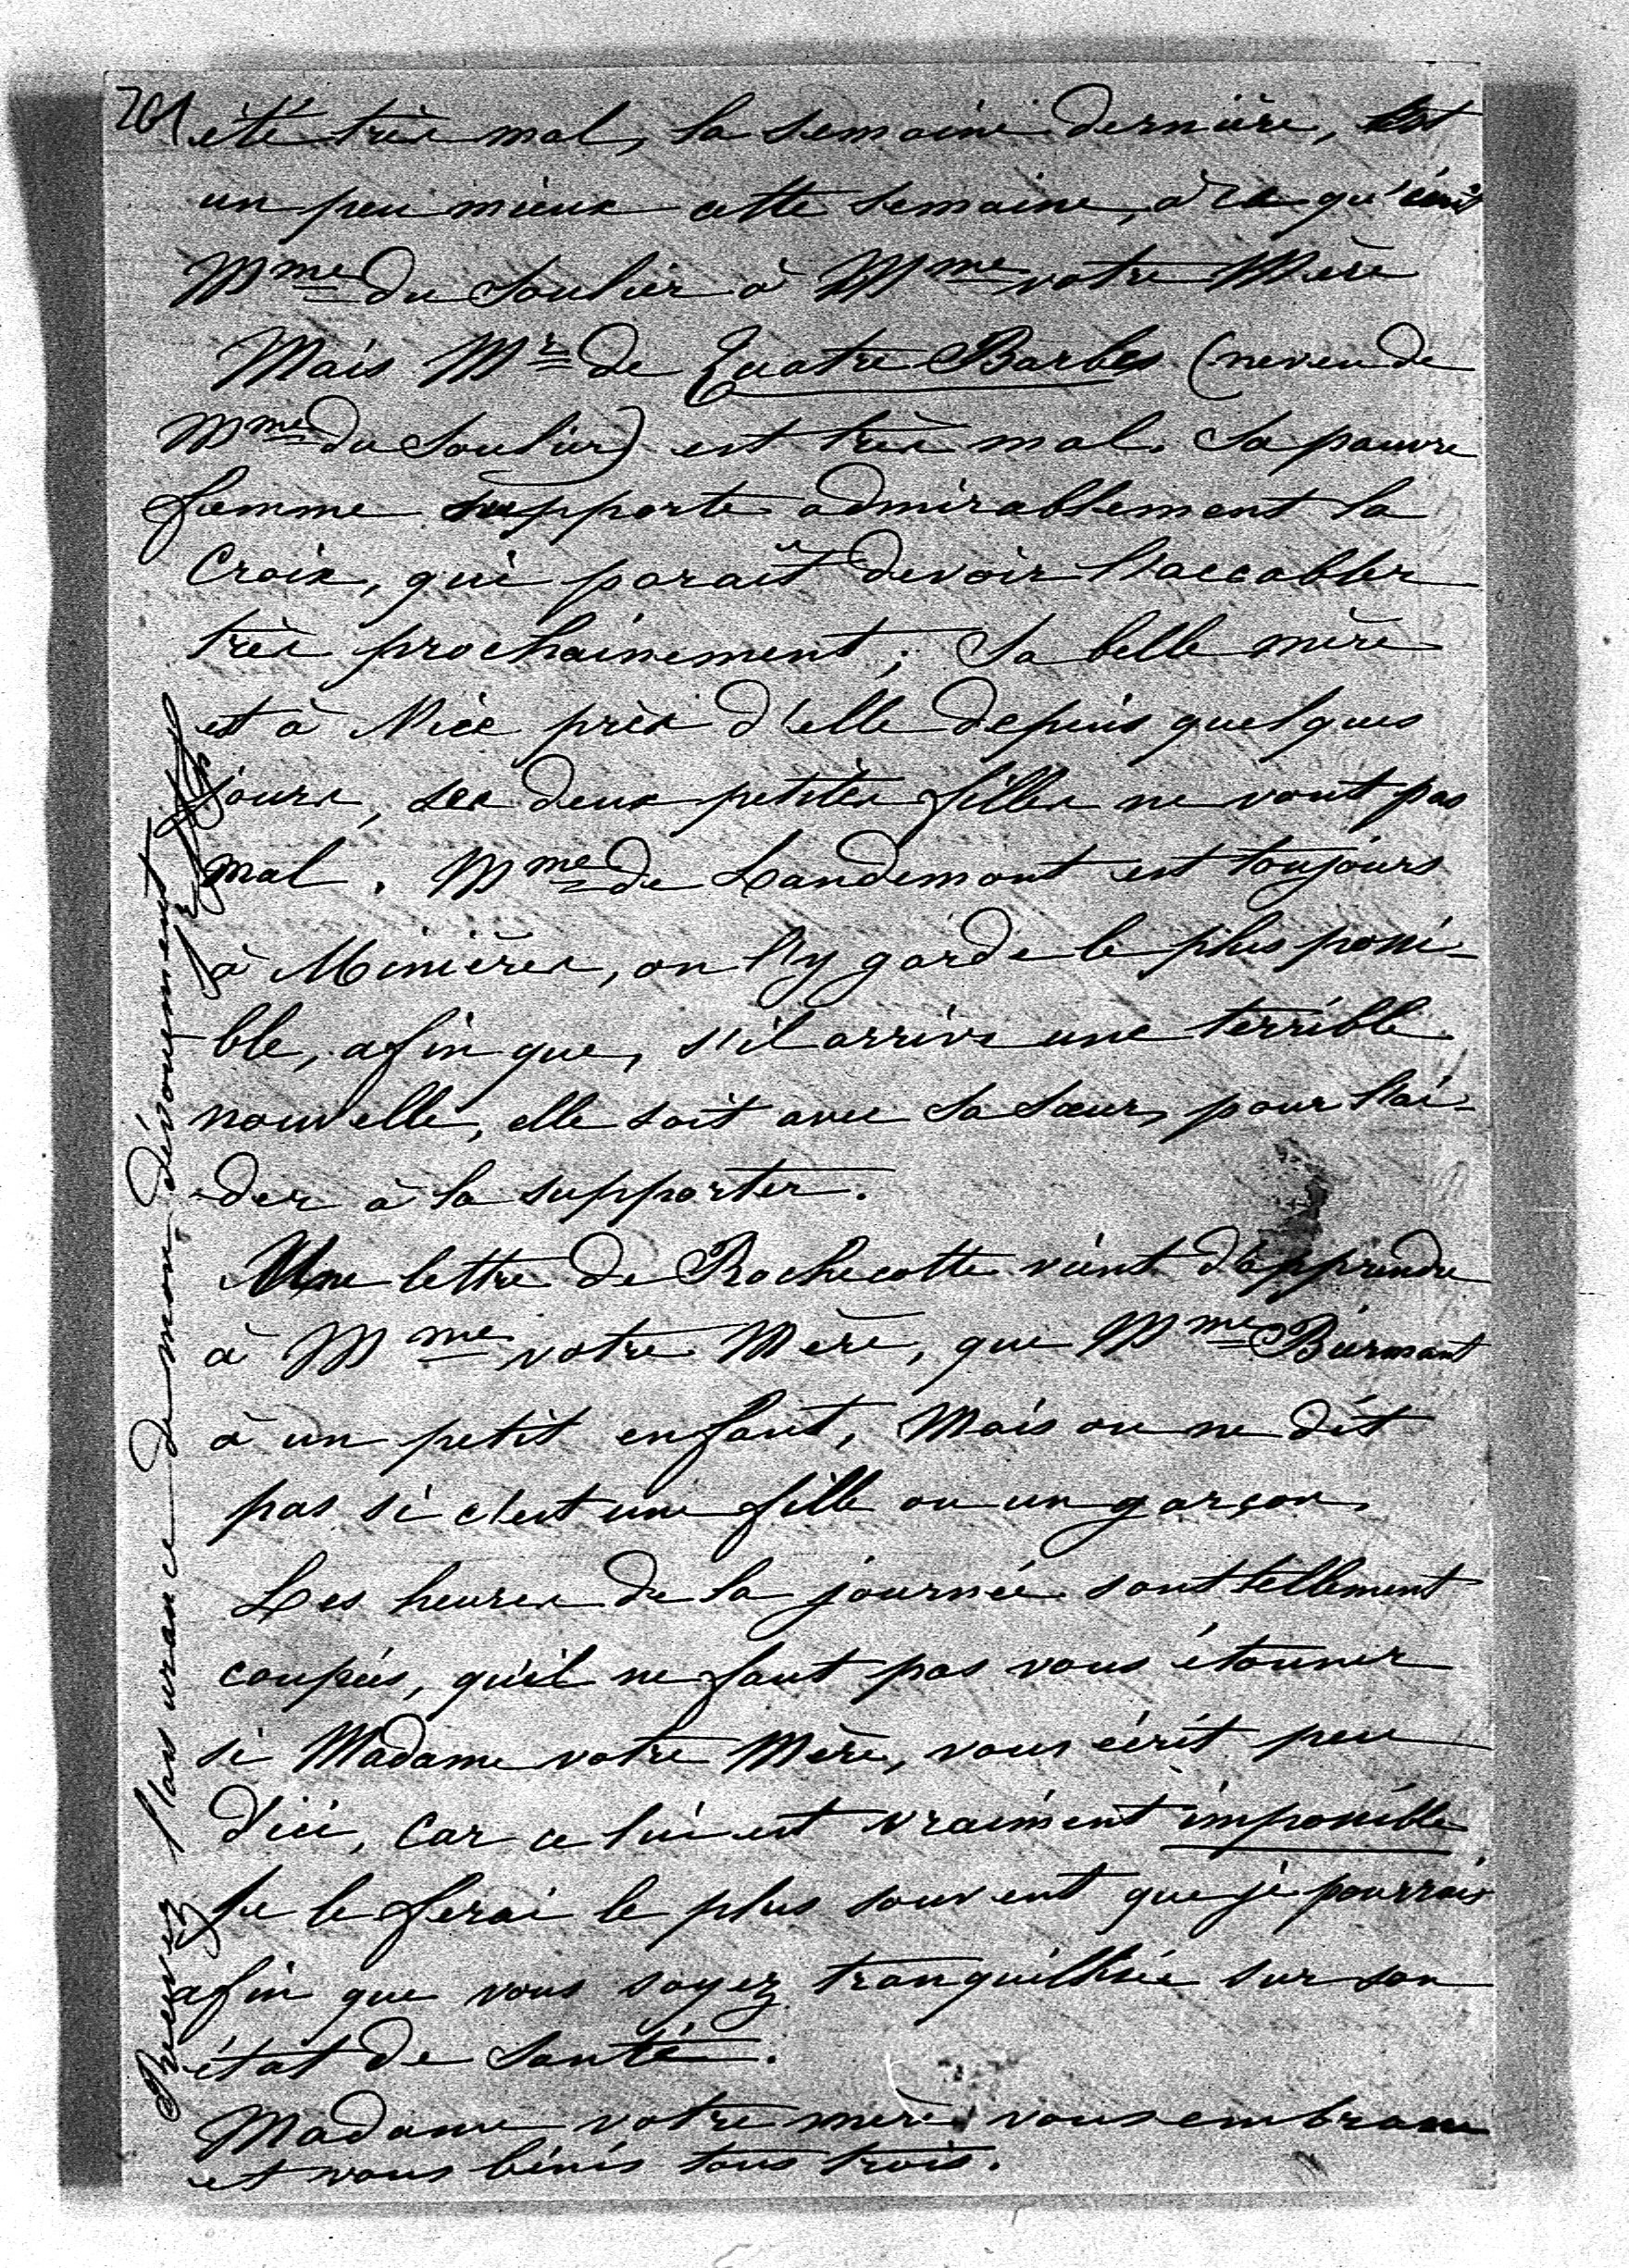 261
été très mal, la semaine dernière, est
un peu mieux cette semaine, à ce qu'écrit
Mme du Soulier à Mme votre Mère
Mais Mr de Quatre Barbes (neveu de
Mme du Soulier) est très mal. Sa pauvre
femme supporte admirablement la
Croix, qui paraît devoir l'accabler
très prochainement ; Sa belle mère
est à Nice près d'elle depuis quelques
jours, ses deux petites filles ne vont pas
mal. Mme de Landemont est toujours
à Minières, on l'y garde le plus possi-
ble, afin que, s'il arrive une terrible
nouvelle, elle soit avec sa sœur, pour l'ai-
der à la supporter.
Une lettre de Rochecotte vient d'apprendre
à Mme votre Mère, que Mme
à un petit enfant, Mais on ne dit
pas si c'est une fille ou un garçon.
Les heures de la journée sont tellement
coupées, qu'il ne faut pas vous étonner
si Madame votre Mère, vous écrit peu
d'ici, Car ce lui est vraiment impossible
Je le ferai le plus souvent que je pourrais
afin que vous soyez tranquillisée sur son
état de santé.
Madame votre mère vous embrasse
et vous bénis tous trois.
Recevez l'assurance de mon dévouement